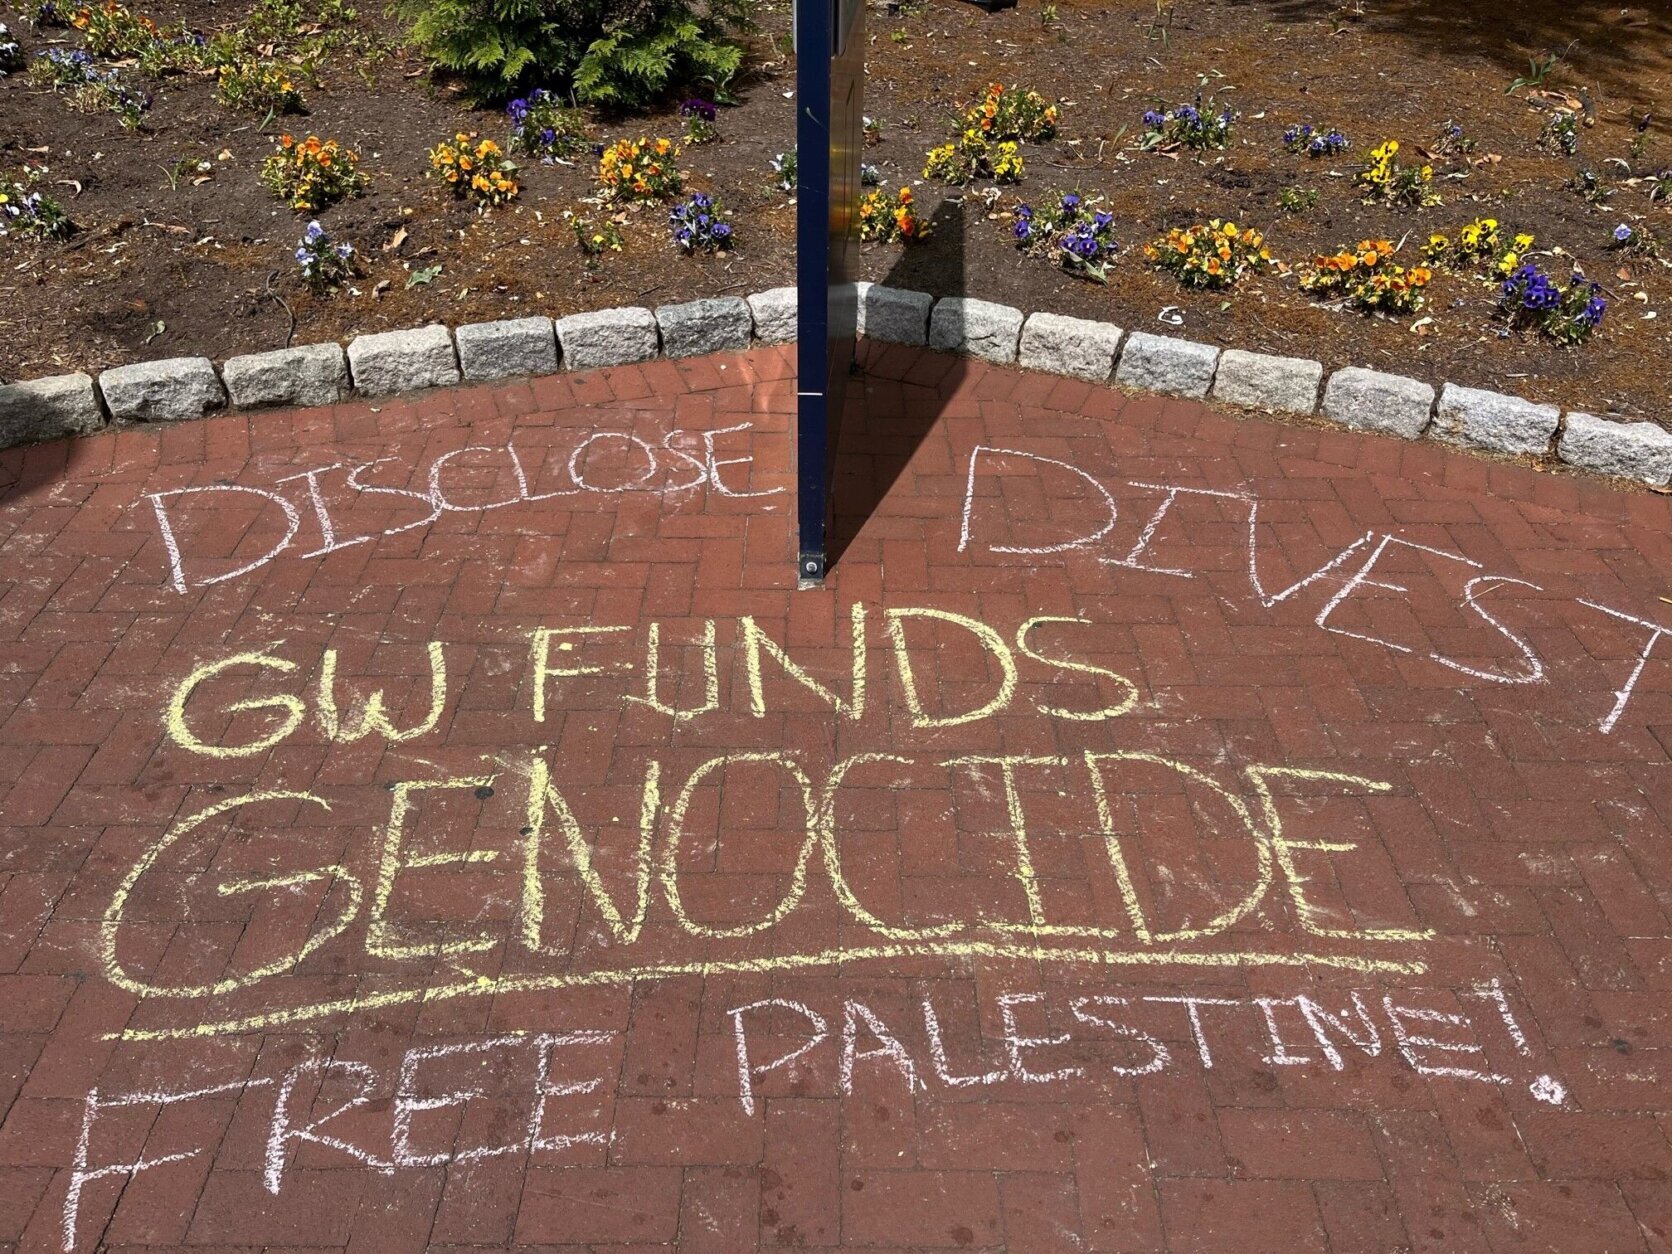 DISCLOSE DIVEST
GW FUNDS
GENOCIDE
FREE PALESTINE!